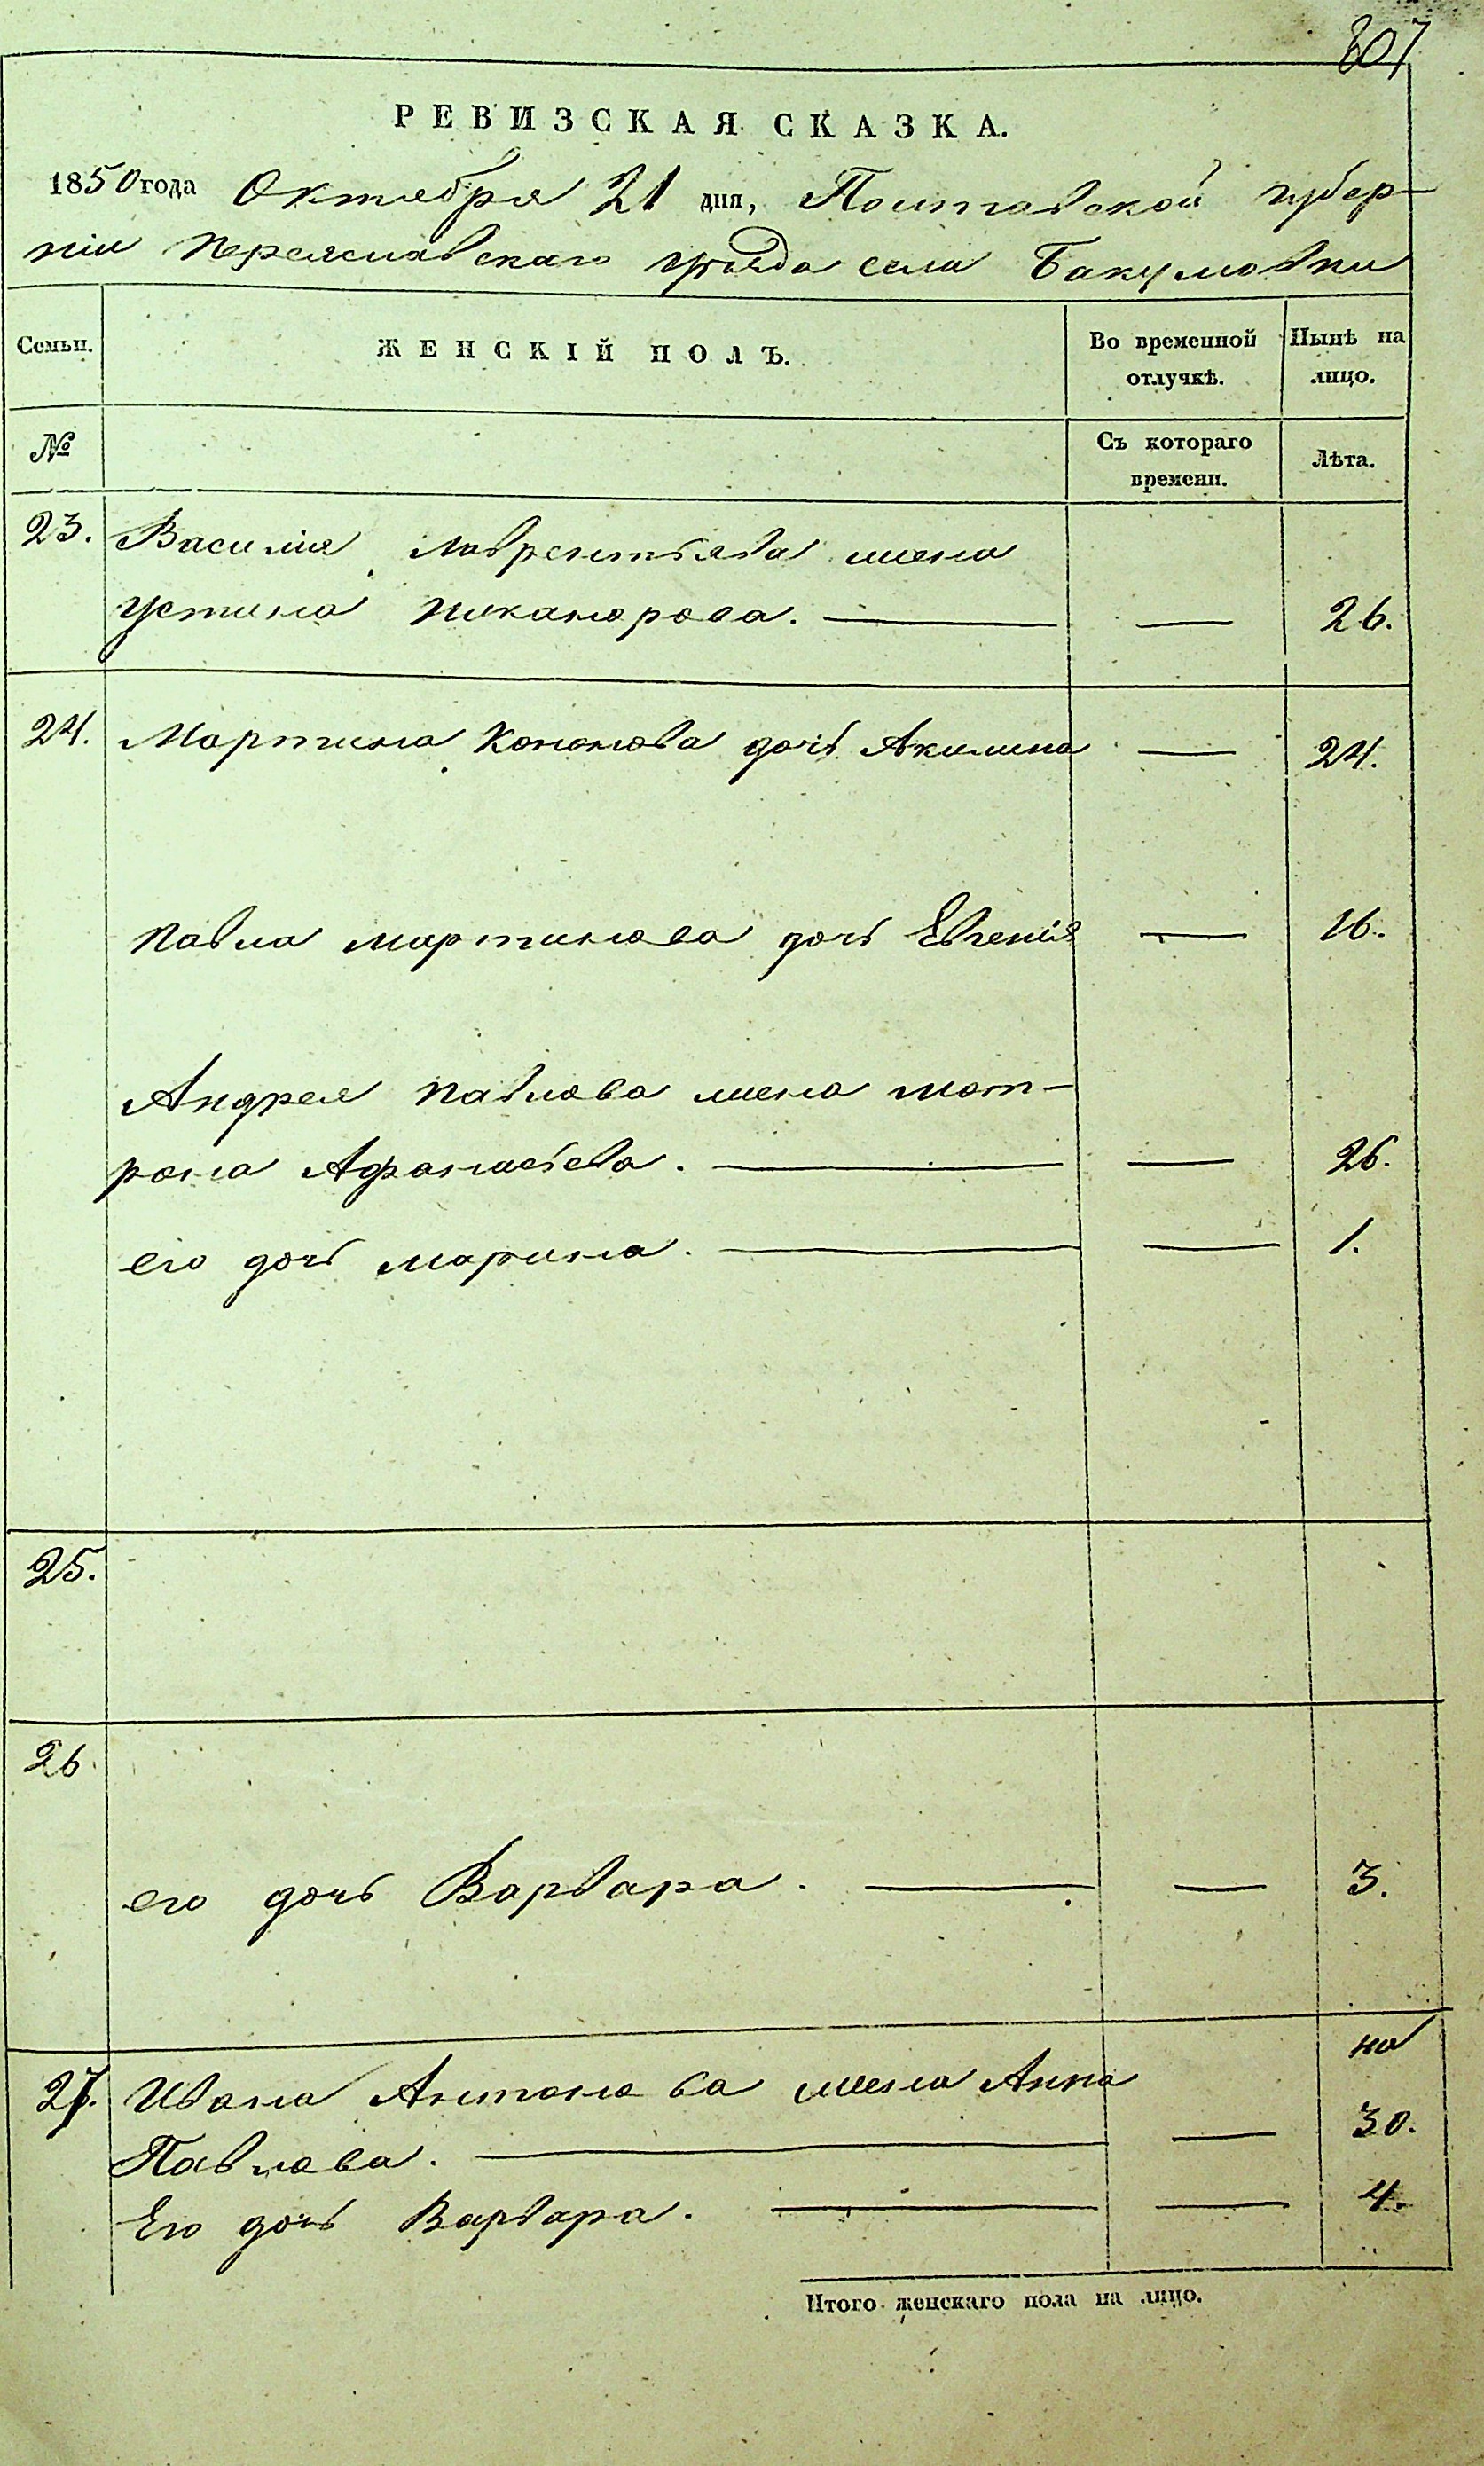 807
РЕВИЗСКАЯ СКАЗКА.
1850 года Октября 21 дня, Полтавской губер-
ніи Переяславскаго уѣзда села Бакумовки
Семьи. ЖЕНСКІЙ ПОЛЪ. Во временной отлучкѣ. Нынѣ на лицо.
№ Съ котораго времени. Лѣта.
23. Василія Лаврентьева жена
Устина Никанорова. — — 26.
24. Мартина Кононова дочь Акилина — 24.
Павла Мартинова дочь Евгенія — 16.
Андрея Павлова жена Мот-
рона Афанасьева. — — 26.
его дочь Марина. — — 1.
25.
26.
его дочь Варвара. — — 3.
27. Ивана Антонова жена Анна на
Павлова. — — 30.
Его дочь Варвара. — — 4.
Итого женскаго пола на лицо.